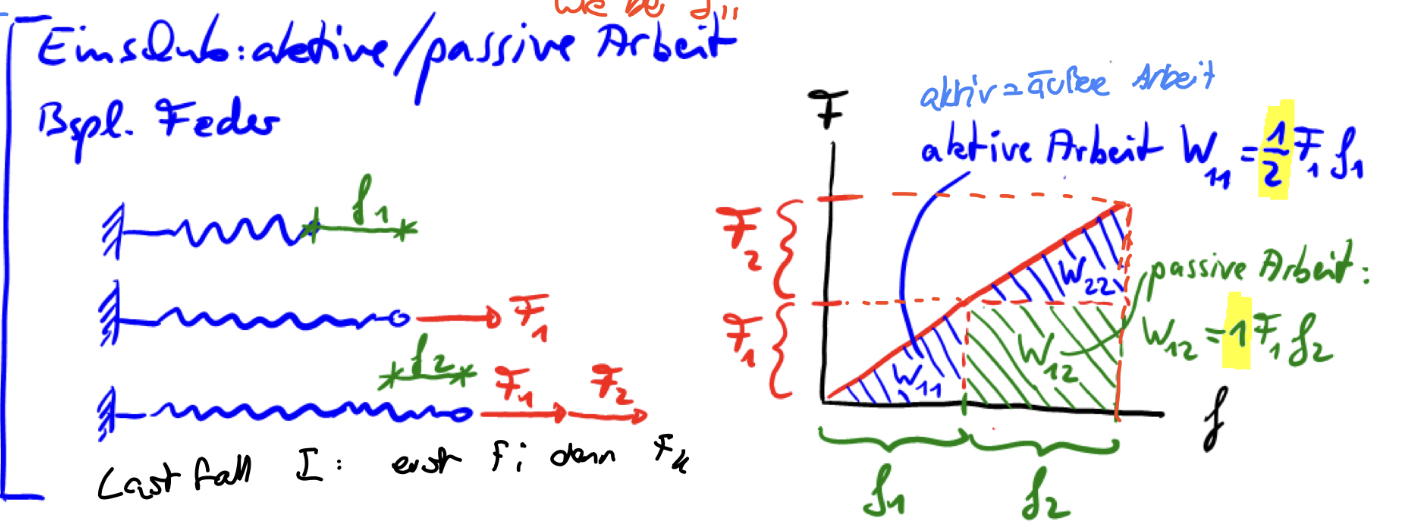 Einschub: aktive/passive Arbeit
Bspl. Feder
f₁
F₁
f₂
F₁ F₂
Lastfall I: erst Fi dann Fk
aktiv = äußere Arbeit
aktive Arbeit W₁₁ = 1/2 F₁ f₁
F
F₂
F₁
W₂₂
passive Arbeit:
W₁₂ = 1 F₁ f₂
W₁₁
W₁₂
f
f₁ f₂